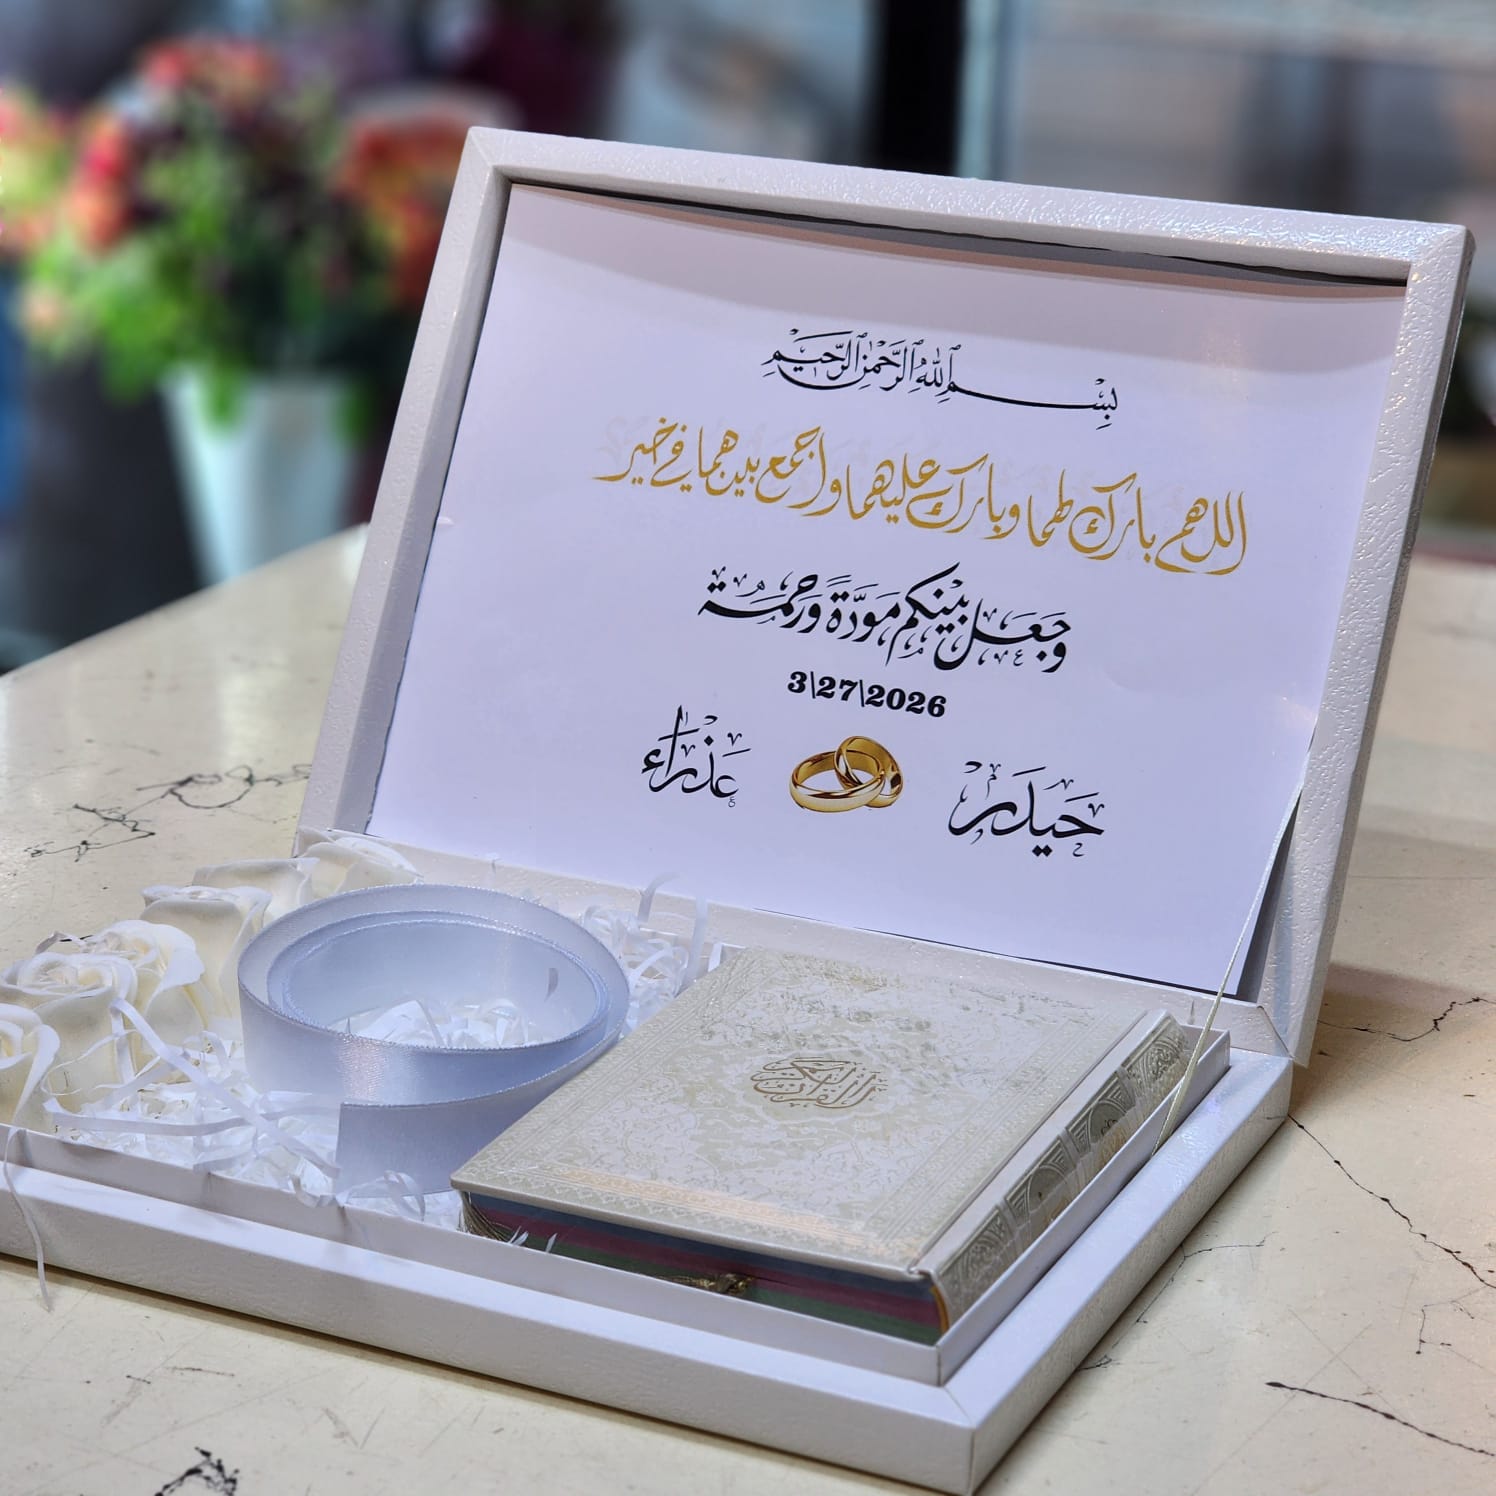 بِسْمِ اللهِ الرَّحْمٰنِ الرَّحِيْمِ
اللهم بارك لهما وبارك عليهما واجمع بينهما في خير
وَجَعَلَ بَيْنَكُم مَوَدَّةً وَرَحْمَة
3\27\2026
حَيدَر
عَذرَاء
القرآن الكريم